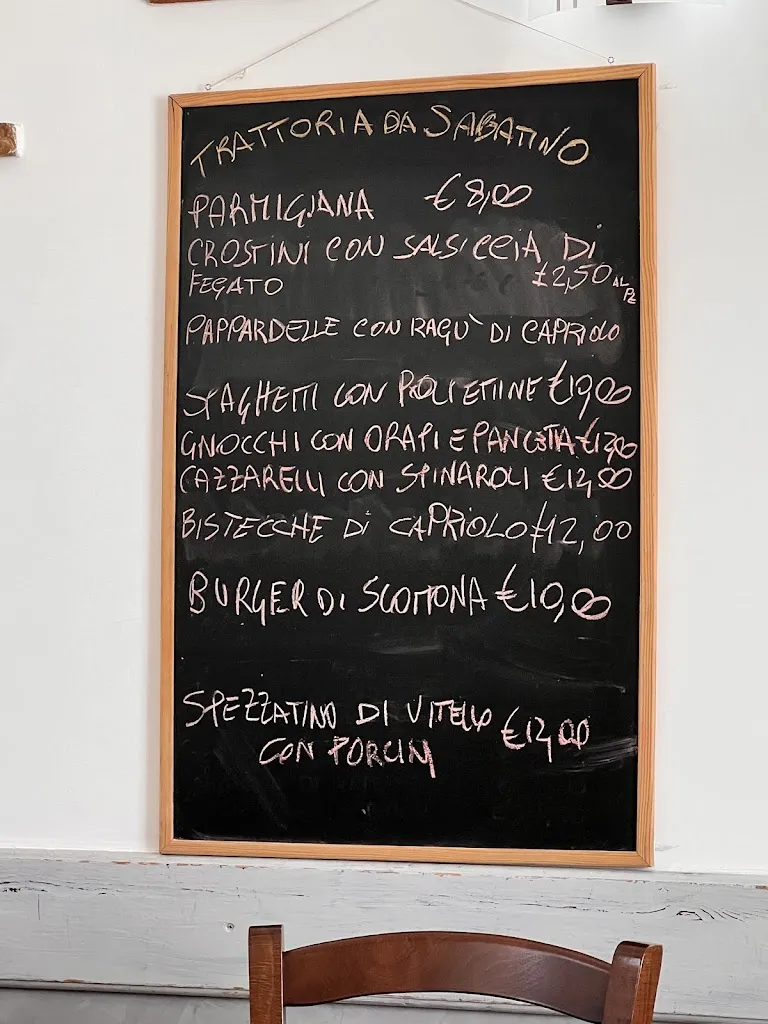 TRATTORIA DA SABATINO
PARMIGIANA €8,00
CROSTINI CON SALSICCIA DI
FEGATO €2,50 AL PZ
PAPPARDELLE CON RAGU` DI CAPRIOLO
SPAGHETTI CON POLPETTINE €10,00
GNOCCHI CON ORAPI E PANCETTA €12,00
CAZZARELLI CON SPINAROLI €12,00
BISTECCHE DI CAPRIOLO €12,00
BURGER DI SCOTTONA €10,00
SPEZZATINO DI VITELLO €12,00
CON PORCINI